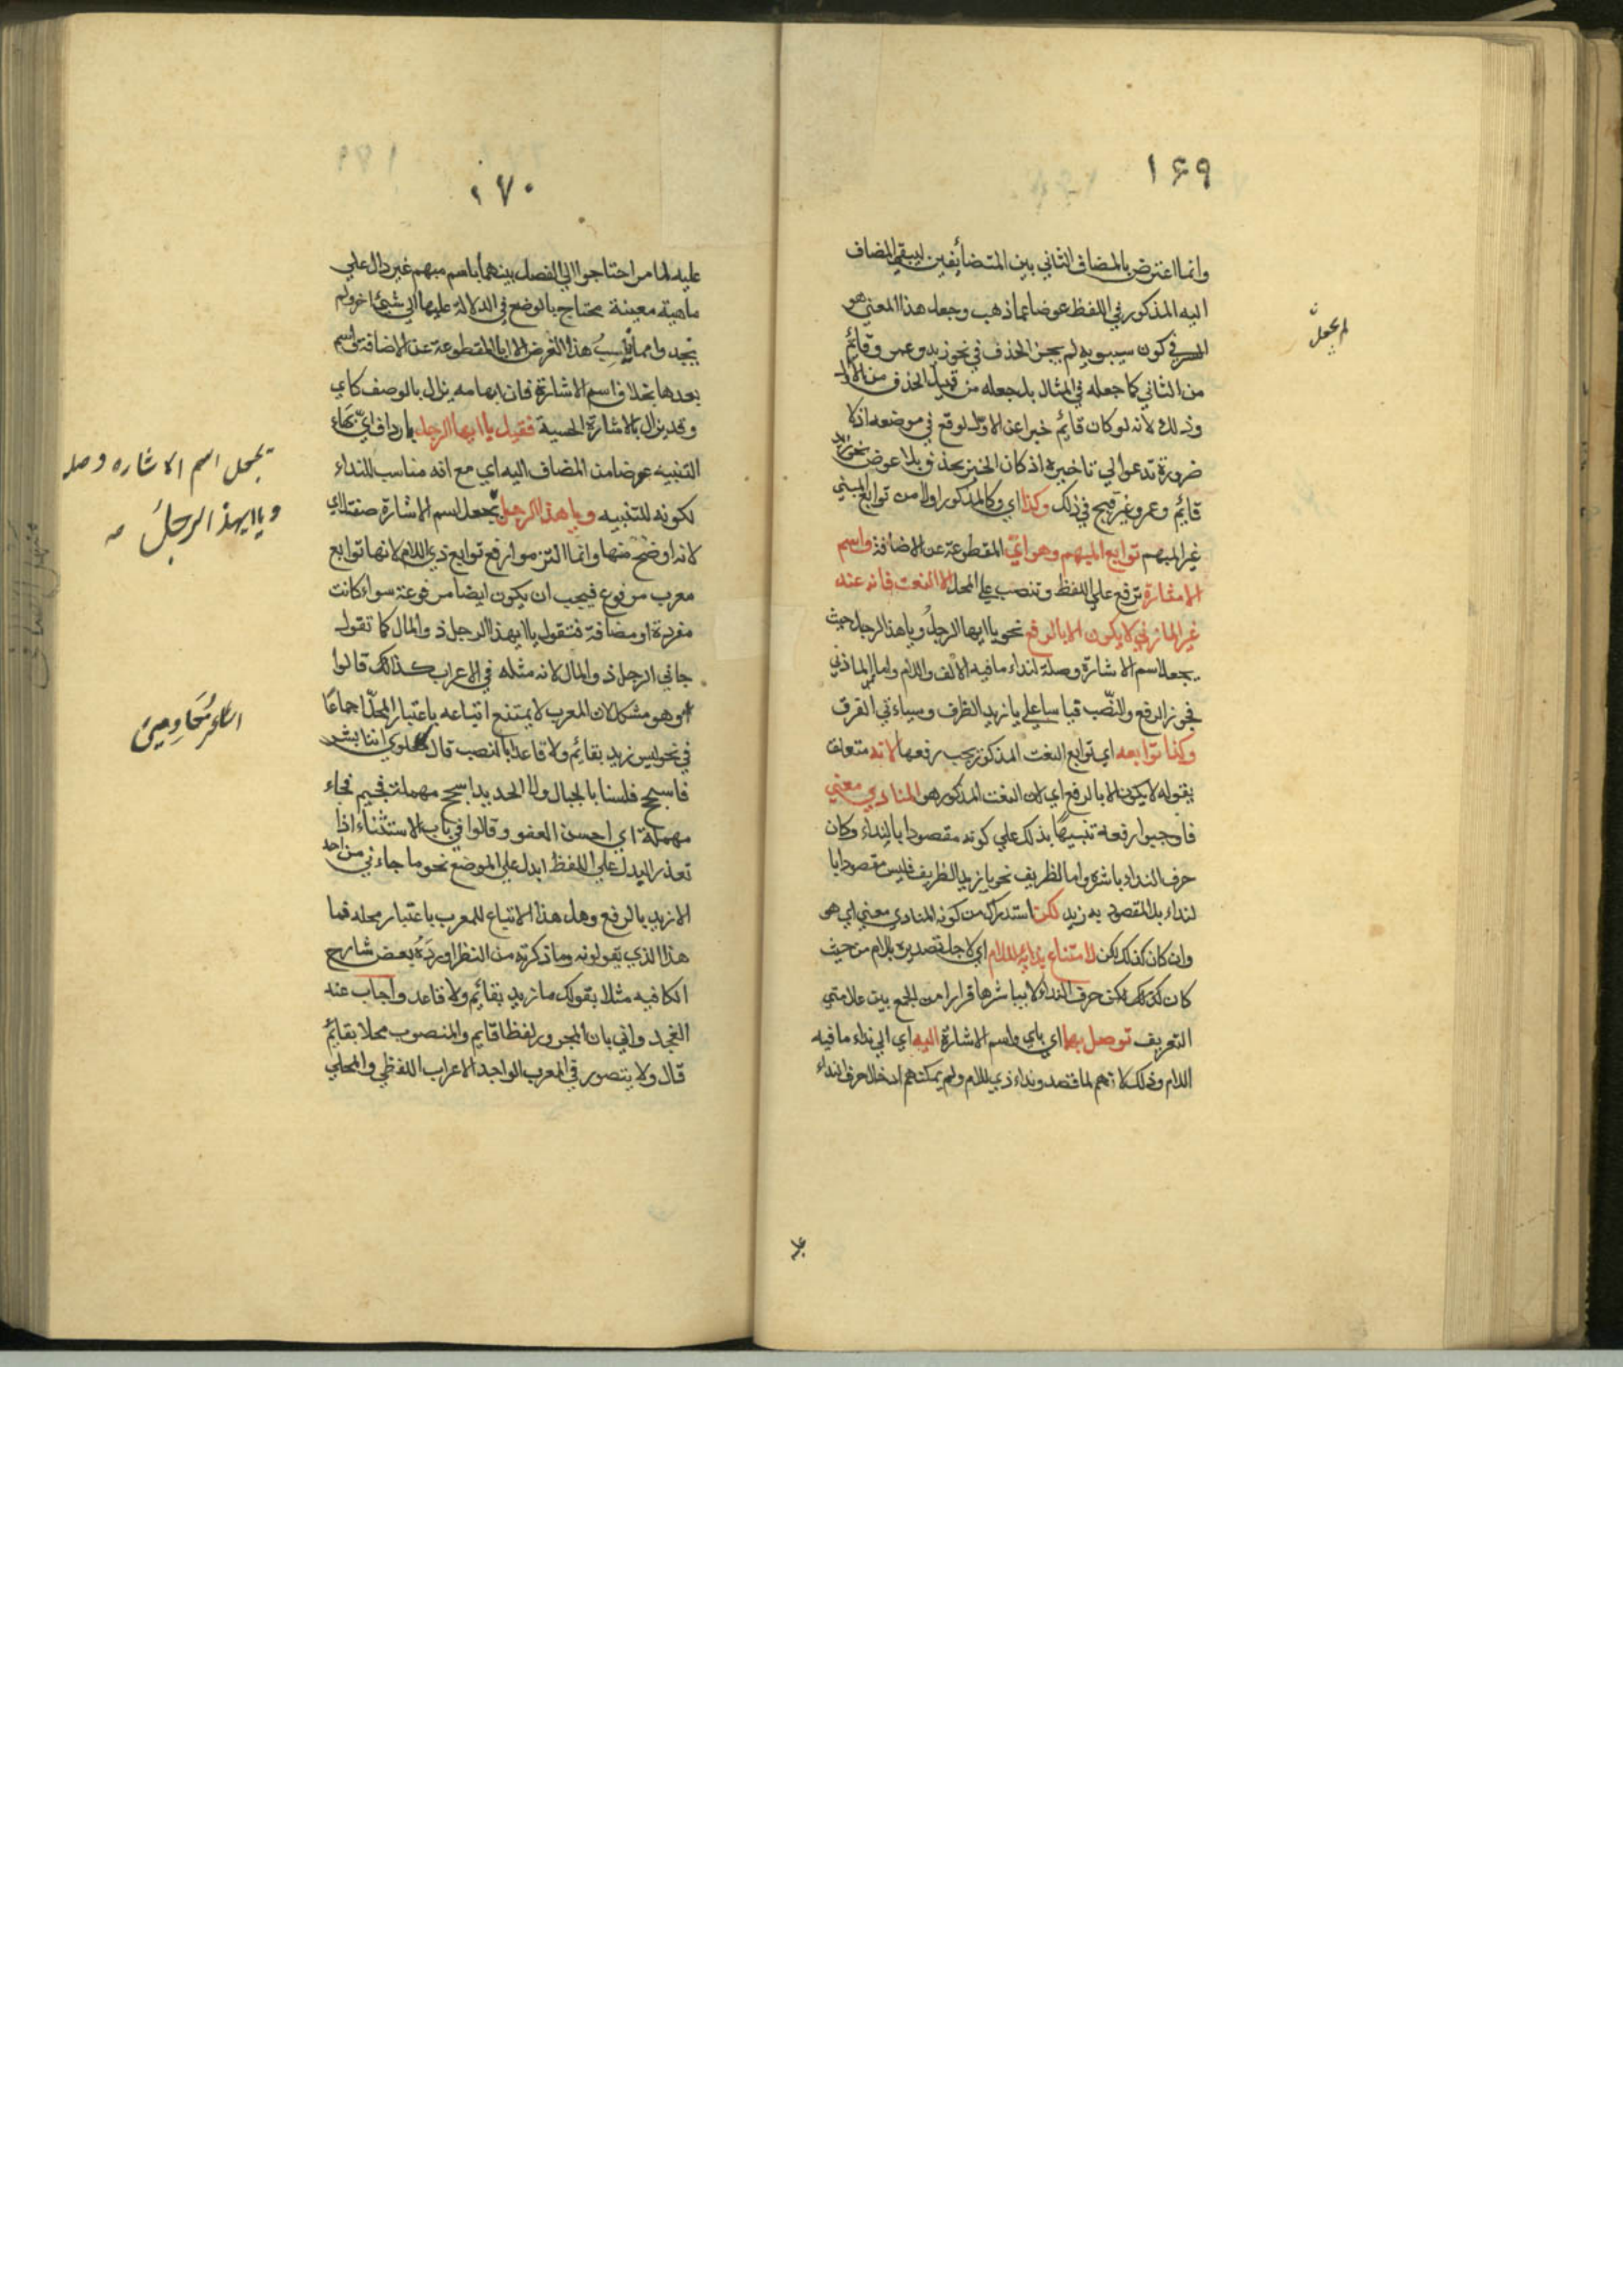 ١٦٩
وانما اعترض بالمضاف الثاني بين المتضايفين ليبقي المضاف
اليه المذكور في اللفظ عوضا عما ذهب وجعل هذا المعني هو
السر في كون سيبويه لم يجز الحذف في نحو زيد وعمرو قائم
من الثاني كما جعله في المثال بل جعله من قبيل الحذف من الاول
وذلك لانه لو كان قائم خبرا عن الاول لوقع في موضعه اذ لا
ضرورة تدعو الي تاخيره اذ كان الخبر يحذف بلا عوض نحو زيد
قائم وعمرو غير قبيح في ذلك وكذا اي وكالمذكور اولا من توابع المبني
غير المبهم توابع المبهم وهو اي المقطوعة عن الاضافة واسم
الاشارة ترفع علي اللفظ وتنصب علي المحل الا النعت فانه عند
غير المازني لا يكون الا بالرفع نحو يا ايها الرجلُ ويا هذا الرجل حيث
يجعل اسم الاشارة وصلة لنداء ما فيه الالف واللام واما المازني
فجوز الرفع والنصب قياسا علي يا زيد الظرف وسياتي الفرق
وكذا توابعه اي توابع النعت المذكور يجب رفعها لانه متعلق
بقوله لا يكون الا بالرفع اي لان النعت المذكور هو المنادي معني
فاوجبوا رفعه تنبيها بذلك علي كونه مقصودا بالنداء وكان
حرف النداء باشره واما الظريف نحو يا زيد الظريف فليس مقصودا با
لنداء بل المقصود به زيد لكن استدراك من كونه المنادي معني اي هو
وان كان كذلك لكن لامتناع يا اللام اي لاجل تصديره باللام من حيث
كان كذلك لكن حرف النداء لا يباشرها فرارا من الجمع بين علامتي
التعريف توصل بهما اي باي واسم الاشارة اليه اي الي نداء ما فيه
اللام وذلك لانهم لما قصدوا نداء ذي اللام ولم يمكنهم ادخال حرف النداء
لم يجعل
١٧٠
عليه لما مر احتاجوا الي الفصل بينهما باسم مبهم غير دال علي
ماهية معينة يحتاج بالوضع في الدلالة عليها الي شيئ اخر ولم
يجدوا مما يناسب هذا الغرض الا ايا المقطوعة عن الاضافة
بعدها بخلاف اسم الاشارة فان ابهامه يزال بالوصف كاي
وقد يزال بالاشارة الحسية فقيل يا ايها الرجل بارداف اي بهاء
التنبيه عوضا من المضاف اليه اي مع انه مناسب للنداء
لكونه للتنبيه ويا هذا الرجل بجعل اسم الاشارة صفة لاي
لانه اوضح منها وانما التزموا رفع توابع ذي اللام لانها توابع
معرب مرفوع فيجب ان يكون ايضا مرفوعة سواء كانت
مفردة او مضافة فتقول يا ايهذا الرجل ذو المال كما تقول
جاني الرجل ذو المال لانه مثله في الاعراب كذلك قالوا
وهو مشكل لان المعرب لا يمتنع اتباعه باعتبار المحل اجماعا
في نحو ليس زيد بقائم ولا قاعدا بالنصب قال معاوي اننا بشر
فاسجح فلسنا بالجبال ولا الحديدا سجح مهملة فجيم فحاء
مهملة اي احسن العفو وقالوا في باب الاستثناء اذا
تعذر البدل علي اللفظ ابدل علي الموضع نحو ما جاءني من احد
الا زيد بالرفع وهل هذا الا اتباع للمعرب باعتبار محله فما
هذا الذي يقولونه وما ذكرته من النظر اورده بعض شارح
الكافيه مثلا بقولك ما زيد بقائم ولا قاعد واجاب عنه
الغجدواني بان المجرور لفظا قايم والمنصوب محلا بقائم
قال ولا يتصور في المعرب الواحد الاعراب اللفظي والمحلي
بجعل اسم الاشاره وصله
ويا ايهذا الرجل